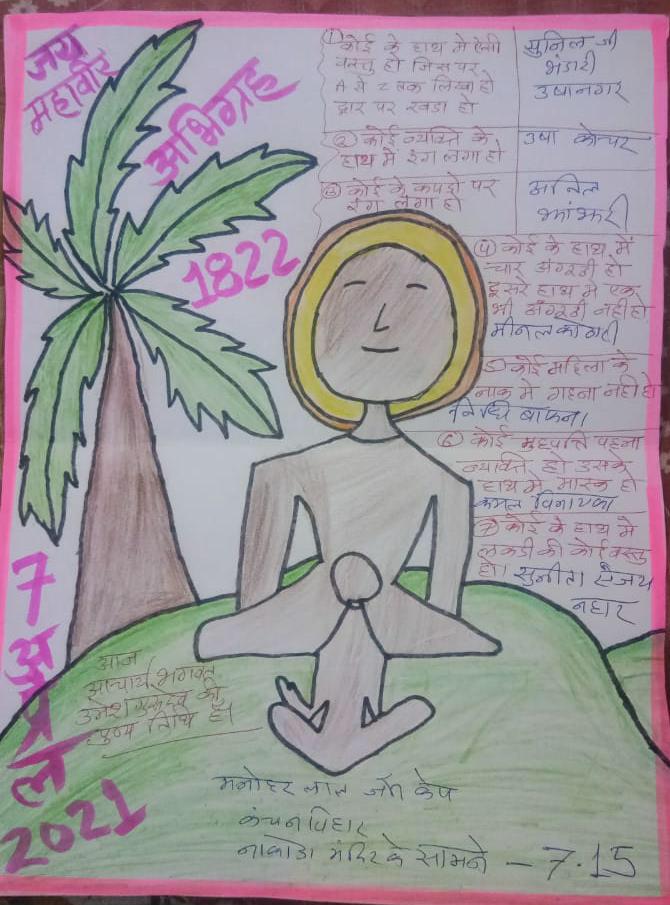 जय
महावीर
अभिग्रह
1822
① कोई के हाथ मे ऐसी
वस्तु हो जिस पर
A से Z तक लिखा हो
द्वार पर खडा हो
सुनिल जी
भंडारी
उषानगर
② कोई व्यक्ति के
हाथ में रंग लगा हो
उषा कोचर
③ कोई के कपड़ो पर
रंग लगा हो
अनिल
झांझरी
④ कोई के हाथ में
चार अंगूठी हो
दूसरे हाथ मे एक
भी अंगूठी नहीं हो
मीनल
5 कोई महिला के
नाक मे गहना नही हो
निधि बाफना
⑥ कोई मुहपत्ति पहना
व्यक्ति हो उसके
हाथ मे मास्क हो
कमल विनायका
⑦ कोई के हाथ मे
लकडी की कोई वस्तु
हो। सुनीता संजय
नहार
7
अप्रैल
2021
आज
आचार्य भगवंत
उमेश की
पुण्य तिथि है।
मनोहर लाल जैन
कंचनविहार
नाकोडा मंदिर के सामने – 7.15